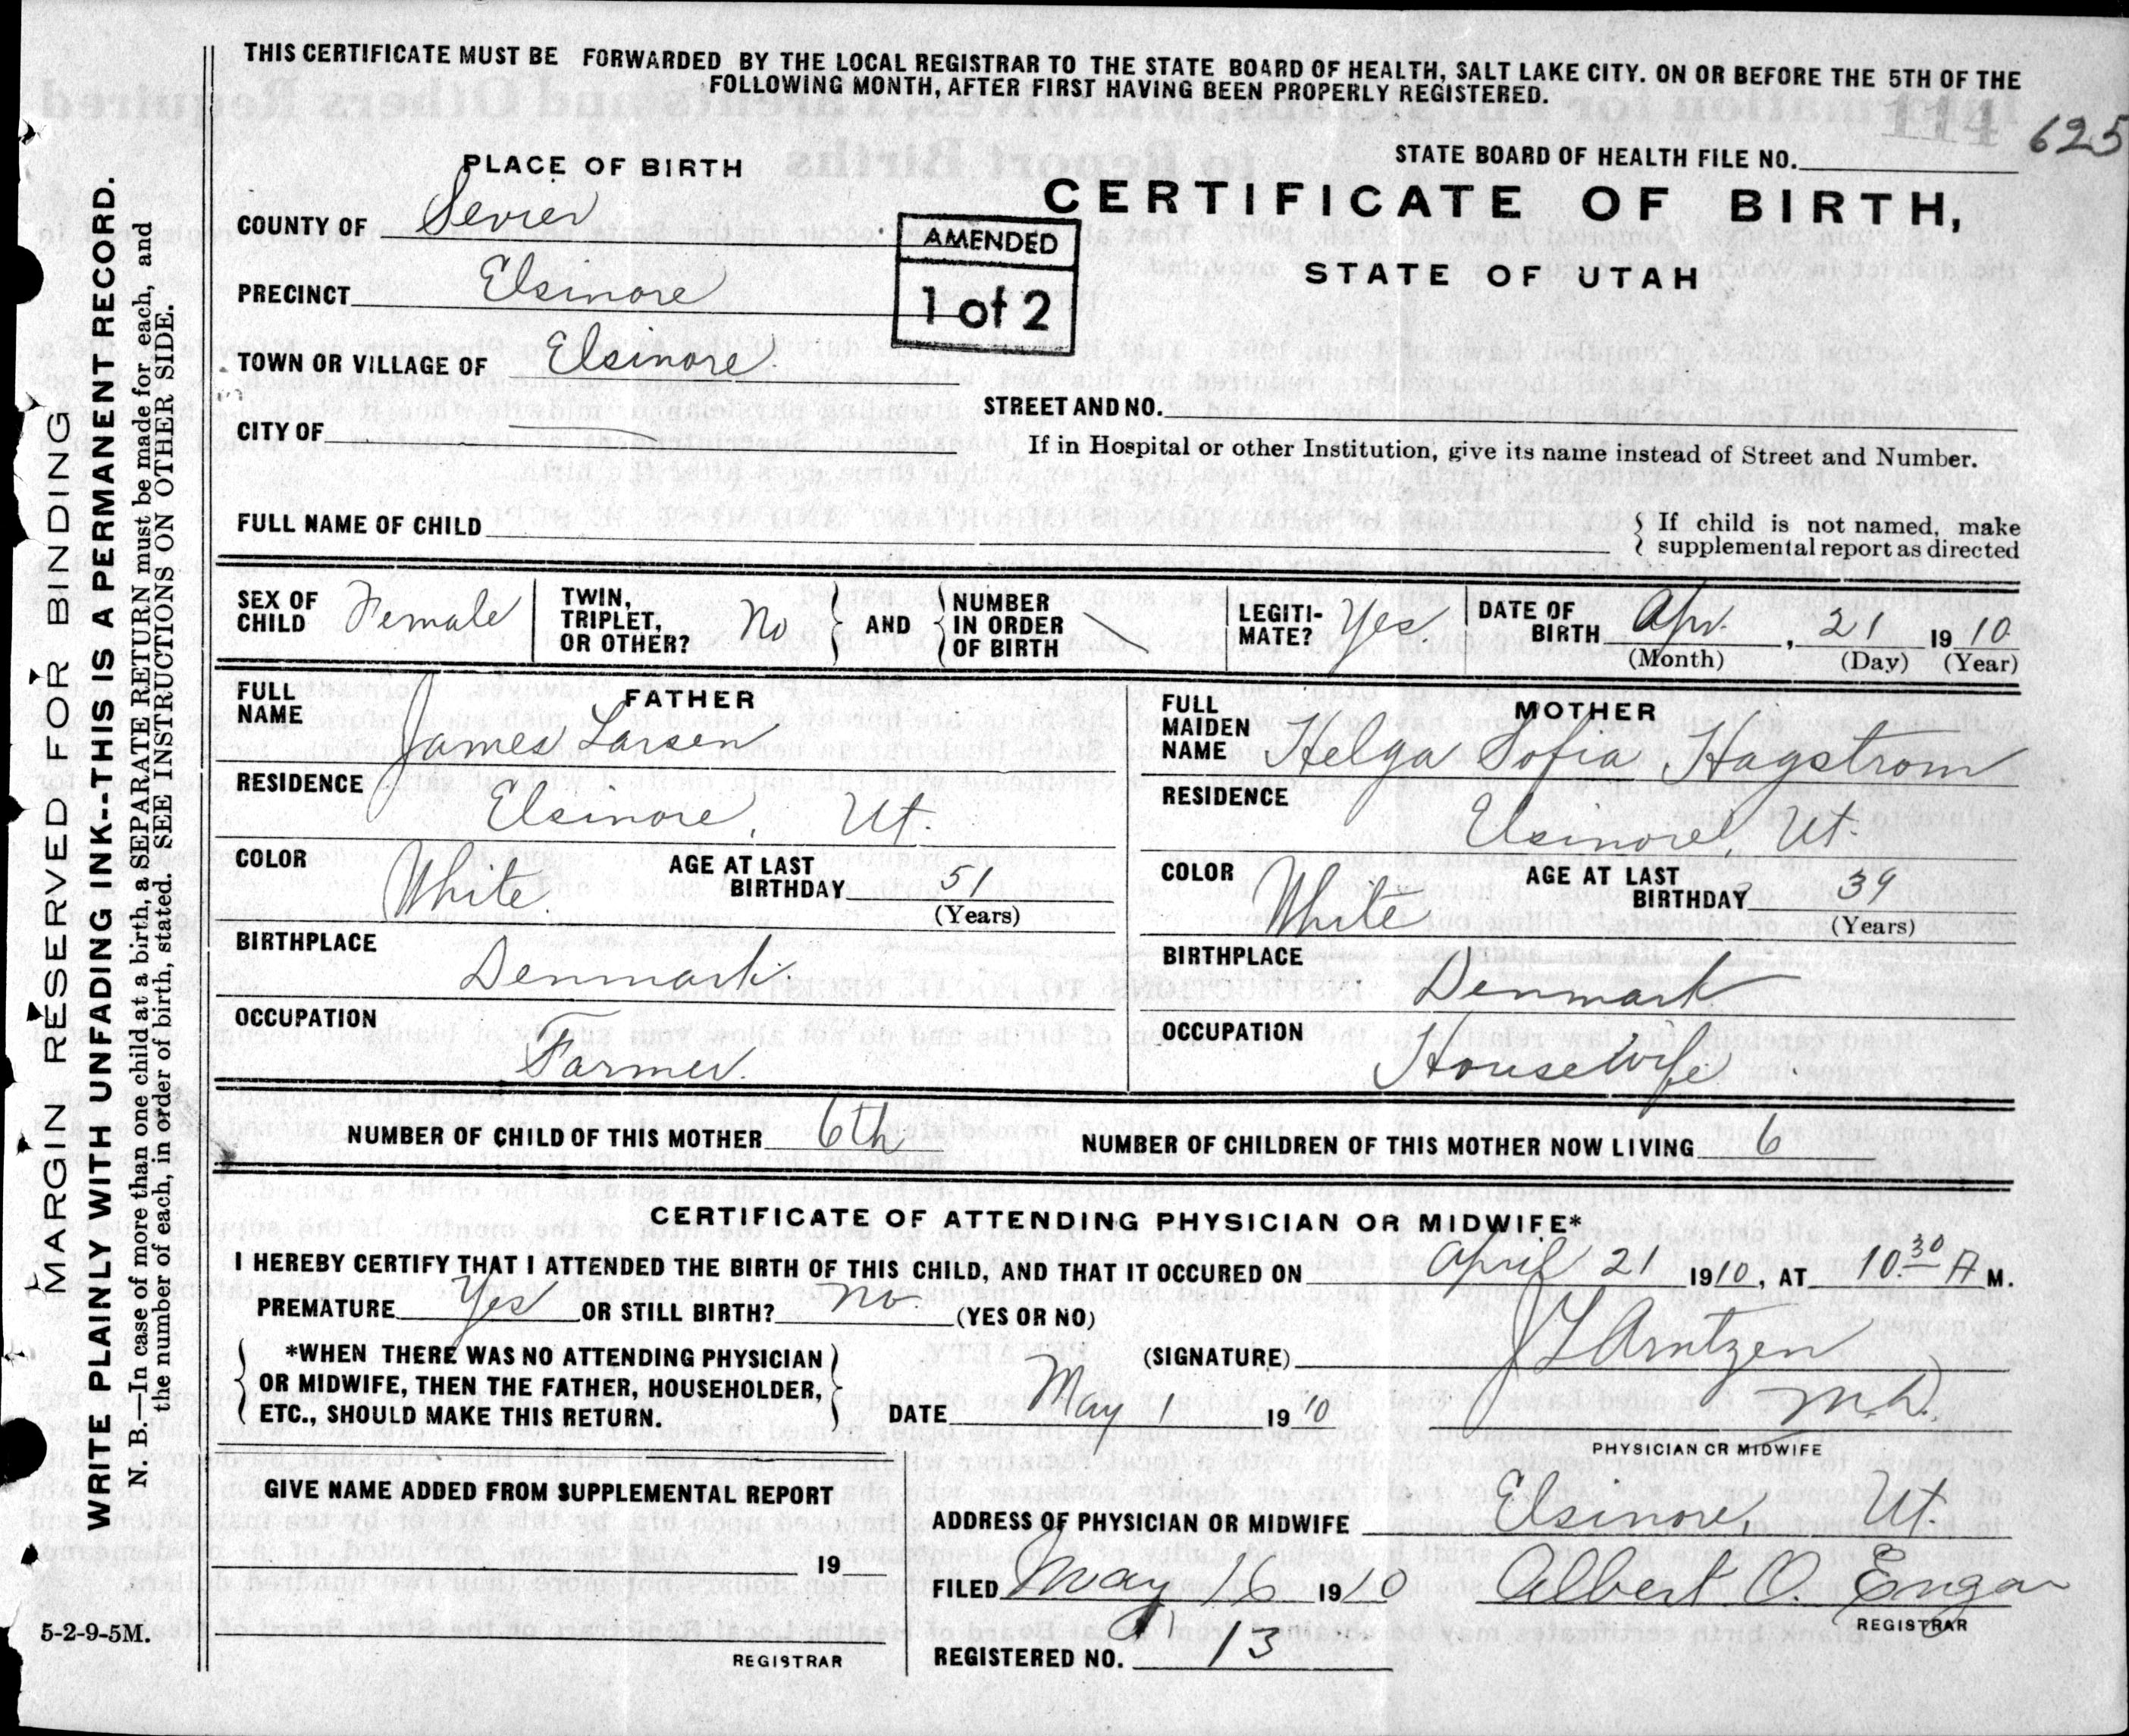 THIS CERTIFICATE MUST BE FORWARDED BY THE LOCAL REGISTRAR TO THE STATE BOARD OF HEALTH, SALT LAKE CITY. ON OR BEFORE THE 5TH OF THE
FOLLOWING MONTH, AFTER FIRST HAVING BEEN PROPERLY REGISTERED.
114 625
STATE BOARD OF HEALTH FILE NO.
PLACE OF BIRTH
CERTIFICATE OF BIRTH,
STATE OF UTAH
COUNTY OF Sevier
AMENDED
1 of 2
PRECINCT Elsinore
TOWN OR VILLAGE OF Elsinore
STREET AND NO.
CITY OF
If in Hospital or other Institution, give its name instead of Street and Number.
FULL NAME OF CHILD
If child is not named, make
supplemental report as directed
SEX OF CHILD Female
TWIN, TRIPLET, OR OTHER? No
AND
NUMBER IN ORDER OF BIRTH
LEGITI-MATE? Yes
DATE OF BIRTH Apr. , 21 1910
(Month) (Day) (Year)
FATHER
FULL NAME James Larsen
RESIDENCE Elsinore, Ut.
COLOR White AGE AT LAST BIRTHDAY 51
(Years)
BIRTHPLACE Denmark
OCCUPATION Farmer.
MOTHER
FULL MAIDEN NAME Helga Sofia Hagstrom
RESIDENCE Elsinore, Ut.
COLOR White AGE AT LAST BIRTHDAY 39
(Years)
BIRTHPLACE Denmark
OCCUPATION Housewife
NUMBER OF CHILD OF THIS MOTHER 6th NUMBER OF CHILDREN OF THIS MOTHER NOW LIVING 6
CERTIFICATE OF ATTENDING PHYSICIAN OR MIDWIFE*
I HEREBY CERTIFY THAT I ATTENDED THE BIRTH OF THIS CHILD, AND THAT IT OCCURED ON April 21 1910, AT 10.30 A M.
PREMATURE Yes OR STILL BIRTH? no (YES OR NO)
*WHEN THERE WAS NO ATTENDING PHYSICIAN
OR MIDWIFE, THEN THE FATHER, HOUSEHOLDER,
ETC., SHOULD MAKE THIS RETURN.
(SIGNATURE) J L Arntzen
M.D.
DATE May 1 1910
PHYSICIAN OR MIDWIFE
GIVE NAME ADDED FROM SUPPLEMENTAL REPORT
19
REGISTRAR
ADDRESS OF PHYSICIAN OR MIDWIFE Elsinore, Ut.
FILED May 16 1910 Albert O. Engar
REGISTRAR
REGISTERED NO. 13
5-2-9-5M.
MARGIN RESERVED FOR BINDING
WRITE PLAINLY WITH UNFADING INK--THIS IS A PERMANENT RECORD.
N. B.—In case of more than one child at a birth, a SEPARATE RETURN must be made for each, and
the number of each, in order of birth, stated. SEE INSTRUCTIONS ON OTHER SIDE.